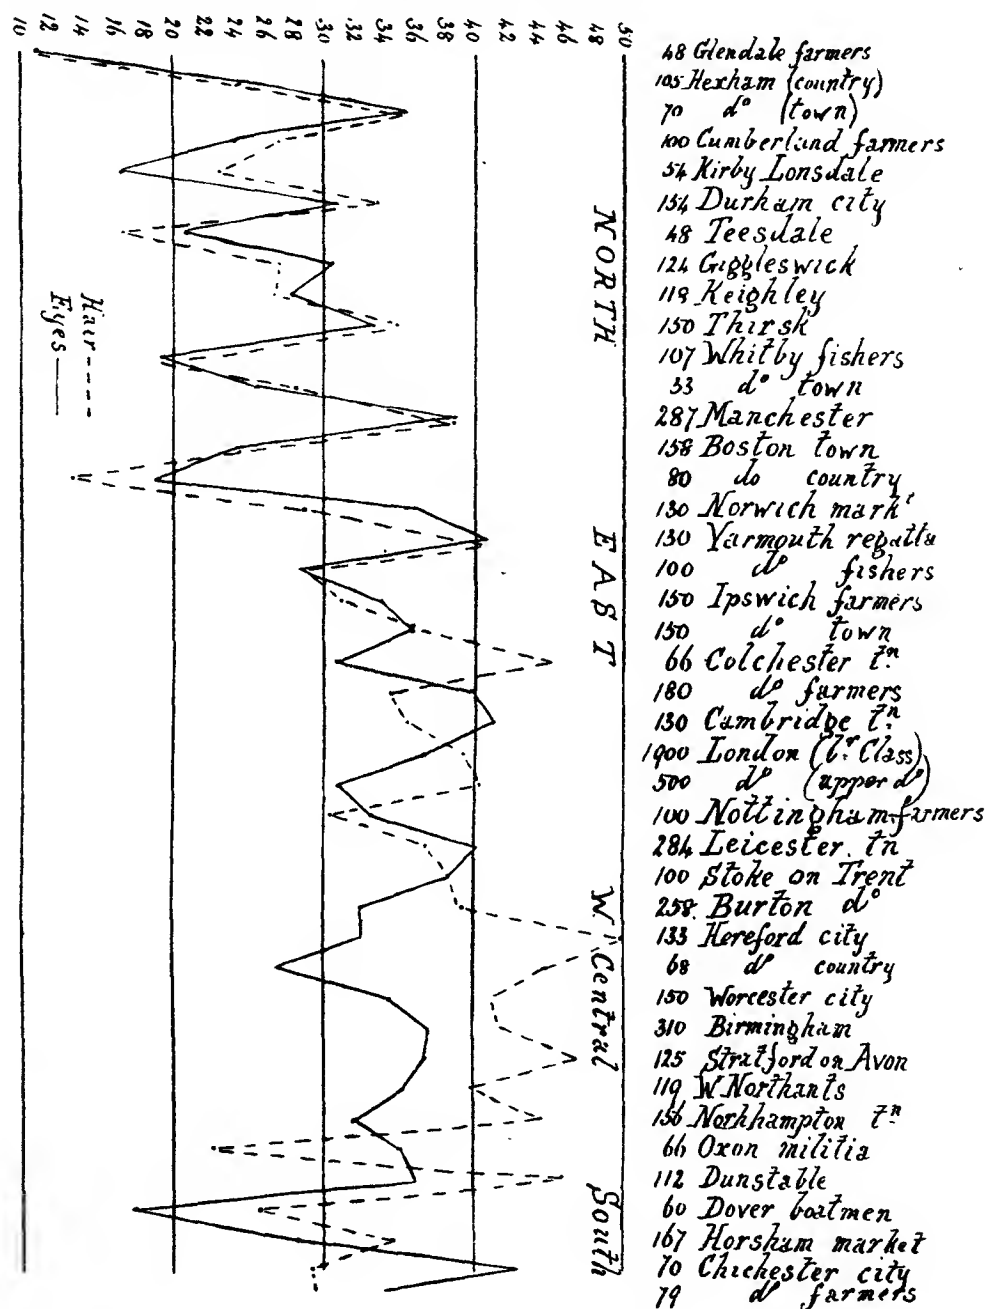 10 12 14 16 18 20 22 24 26 28 30 32 34 36 38 40 42 44 46 48 50
48 Glendale farmers
105 Hexham (country)
70 do (town)
100 Cumberland farmers
54 Kirby Lonsdale
154 Durham city
48 Teesdale
124 Giggleswick
119 Keighley
150 Thirsk
107 Whitby fishers
33 do town
287 Manchester
158 Boston town
80 do country
130 Norwich markt
130 Yarmouth regatta
100 do fishers
150 Ipswich farmers
150 do town
66 Colchester tn
180 do farmers
130 Cambridge tn
1900 London (lr Class)
500 do (upper do)
100 Nottingham farmers
284 Leicester tn
100 Stoke on Trent
258 Burton do
133 Hereford city
68 do country
150 Worcester city
310 Birmingham
125 Stratford on Avon
119 W Northants
156 Norhhampton tn
66 Oxon militia
112 Dunstable
60 Dover boatmen
167 Horsham market
70 Chichester city
79 do farmers
NORTH
EAST
W Central
South
Hair ----
Eyes ——